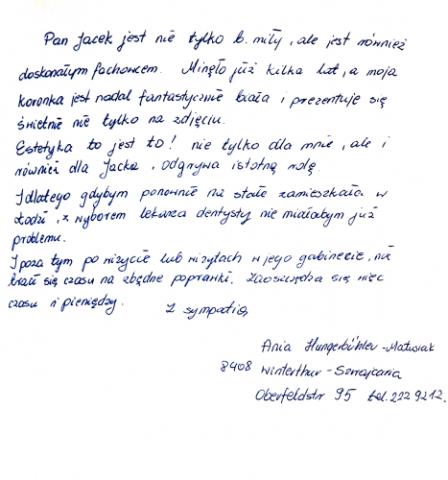 Pan Jacek jest nie tylko b. miły, ale jest również
doskonałym fachowcem. Minęło już kilka lat, a moja
koronka jest nadal fantastycznie biała i prezentuje się
świetnie nie tylko na zdjęciu.
Estetyka to jest to! nie tylko dla mnie, ale i
również dla Jacka, odgrywa istotną rolę.
I dlatego gdybym ponownie na stałe zamieszkała w
Łodzi, z wyborem lekarza dentysty nie miałabym już
problemu.
I poza tym po wizycie lub wizytach w jego gabinecie, nie
traci się czasu na zbędne poprawki. Zaoszczędza się więc
czasu i pieniędzy.
Z sympatią,
Ania Hungerbühler-Matusiak
8408 Winterthur - Szwajcaria
Oberfeldstr 95 tel. 222 9212.